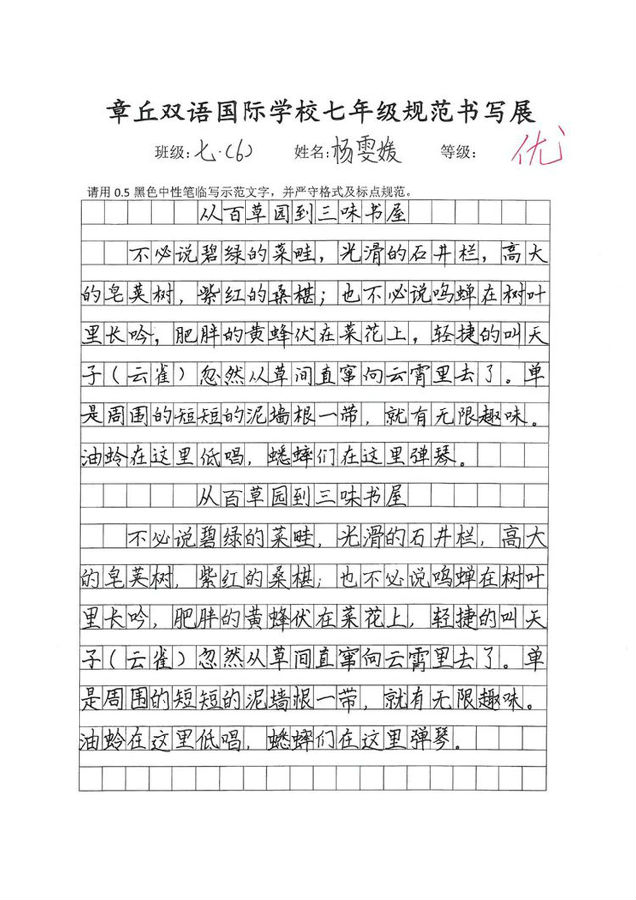 章丘双语国际学校七年级规范书写展
班级：七·（6） 姓名：杨雯媛 等级： 优
请用0.5黑色中性笔临写示范文字，并严守格式及标点规范。
从百草园到三味书屋
不必说碧绿的菜畦，光滑的石井栏，高大
的皂荚树，紫红的桑椹；也不必说鸣蝉在树叶
里长吟，肥胖的黄蜂伏在菜花上，轻捷的叫天
子（云雀）忽然从草间直窜向云霄里去了。单
是周围的短短的泥墙根一带，就有无限趣味。
油蛉在这里低唱，蟋蟀们在这里弹琴。
从百草园到三味书屋
不必说碧绿的菜畦，光滑的石井栏，高大
的皂荚树，紫红的桑椹；也不必说鸣蝉在树叶
里长吟，肥胖的黄蜂伏在菜花上，轻捷的叫天
子（云雀）忽然从草间直窜向云霄里去了。单
是周围的短短的泥墙根一带，就有无限趣味。
油蛉在这里低唱，蟋蟀们在这里弹琴。